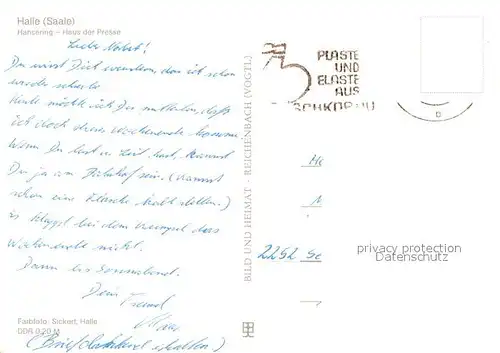 Halle (Saale)
Hansering – Haus der Presse
Lieber Norbert!
Du wirst Dich wundern, das ich schon
wieder schreibe.
Heute möchte ich Dir mitteilen, daß
ich doch dieses Wochenende komme.
Wenn Du Lust u. Zeit hast, kannst
Du ja am Bahnhof sein. (kannst
schon eine Flasche kalt stellen.)
es klappt bei dem das
Wochenende nicht.
Dann bis Sonnabend.
Dein Freund
Farbfoto: Sickert, Halle
DDR 0,20 M
BILD UND HEIMAT · REICHENBACH (VOGTL.)
PLASTE
UND
ELASTE
AUS
SCHKOPAU
2252 Se
privacy protection
Datenschutz